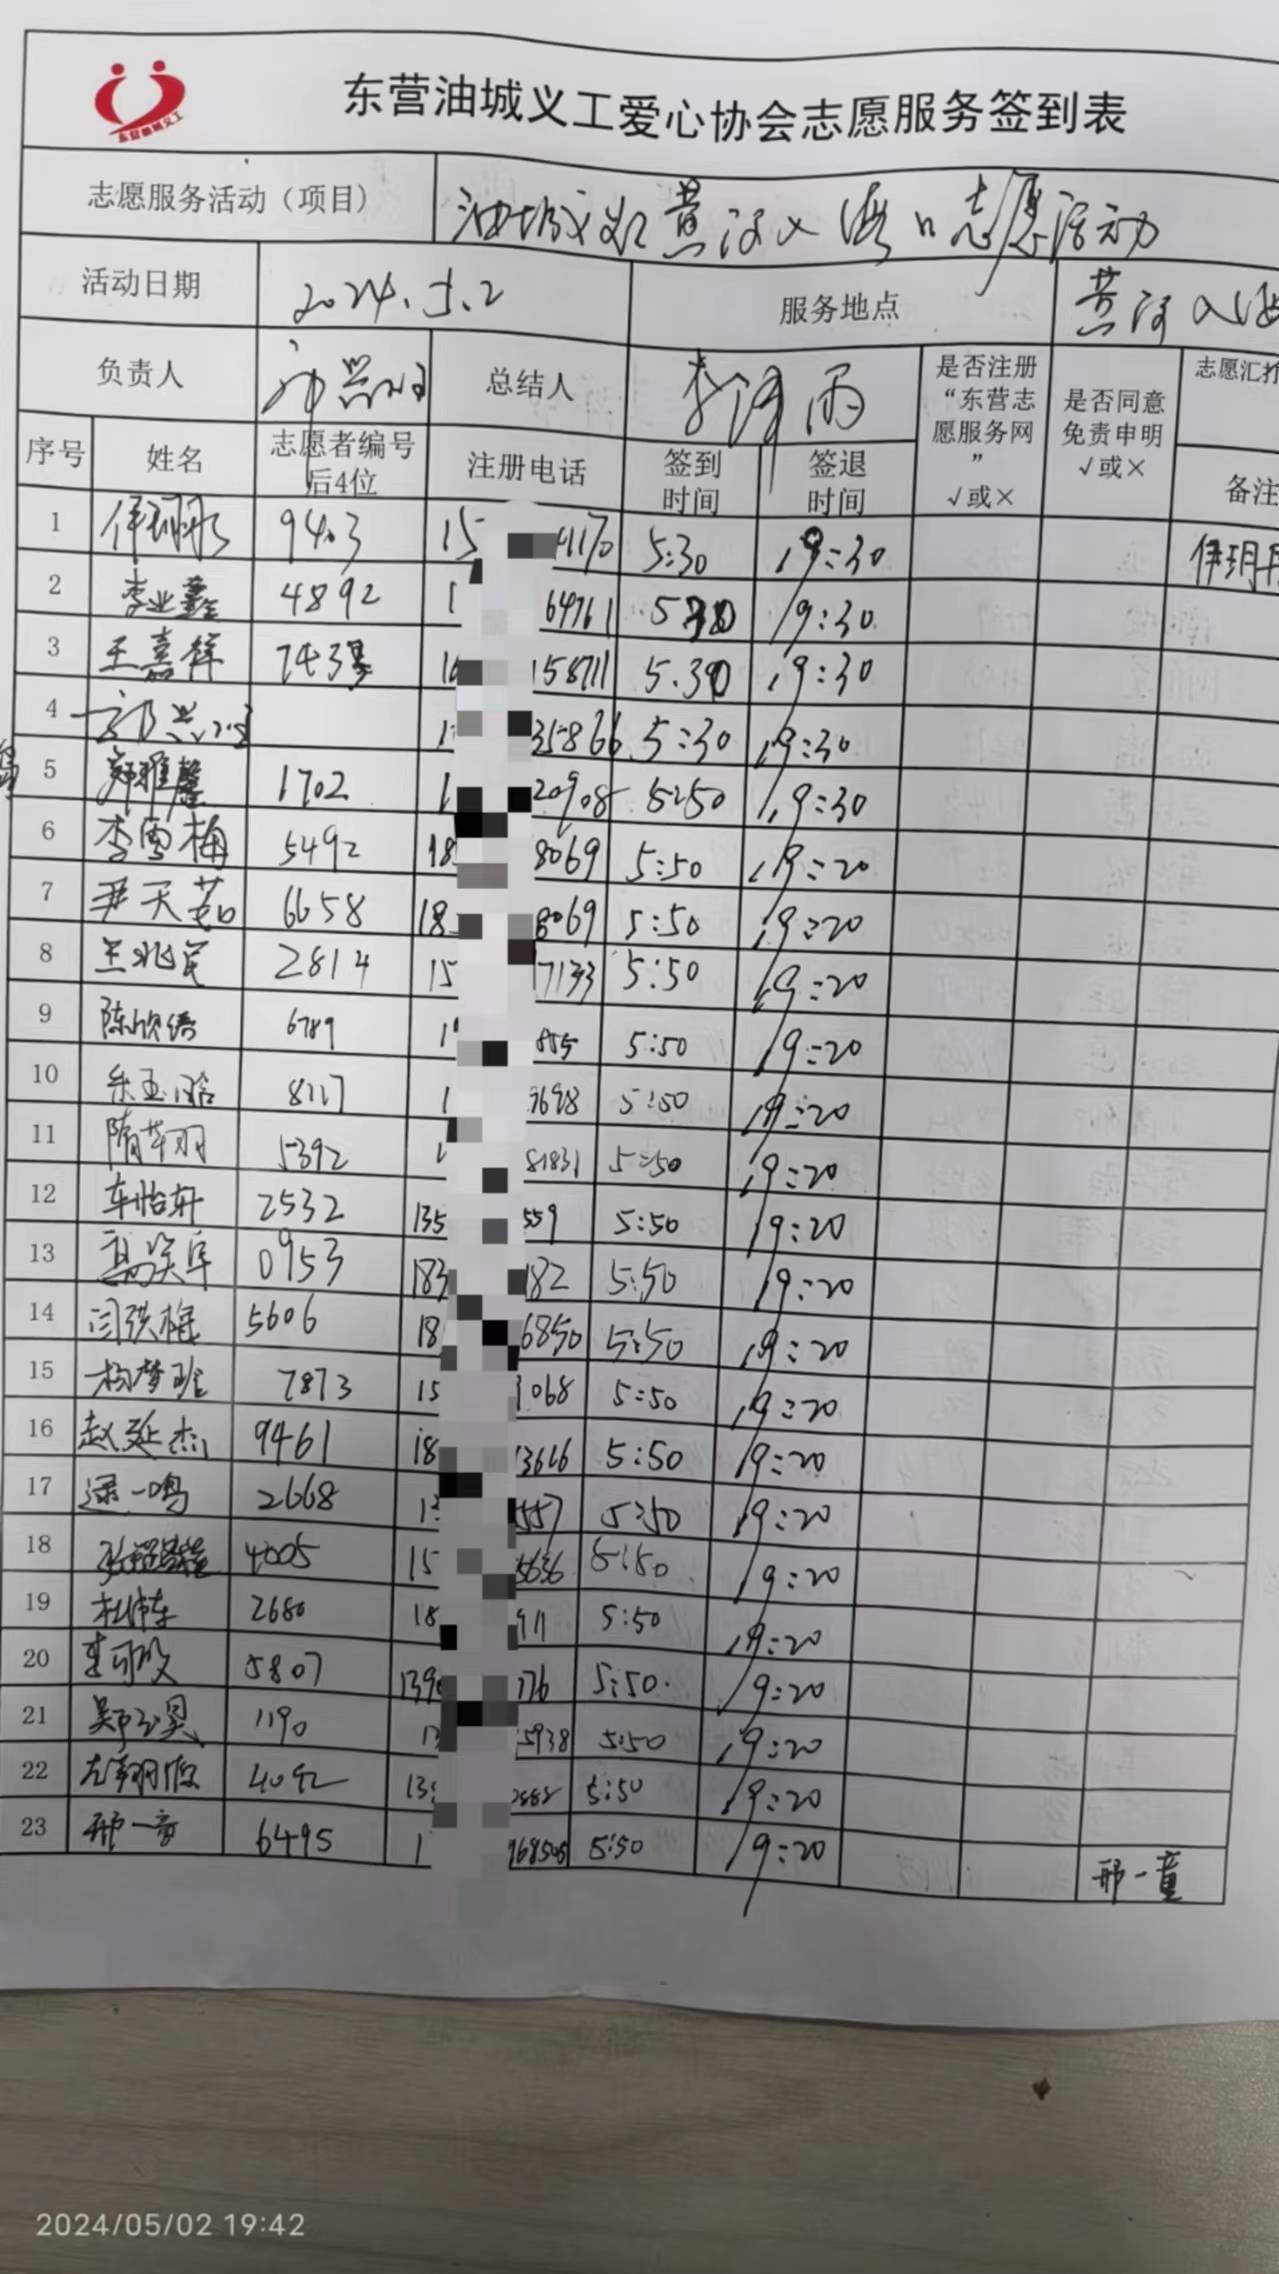 东营油城义工
东营油城义工爱心协会志愿服务签到表
志愿服务活动（项目） 油城义工黄河入海口志愿活动
活动日期 2024.5.2 服务地点 黄河入海
负责人 总结人 李泽雨 是否注册“东营志愿服务网”√或× 是否同意免责申明√或× 志愿汇打
序号 姓名 志愿者编号后4位 注册电话 签到时间 签退时间 备注
1 9403 15 4170 5:30 19:30 伊玥
2 李业鑫 4892 1 64761 5:30 19:30
3 王嘉祥 743 1 158711 5:30 19:30
4 1 35866 5:30 19:30
5 郑雅馨 1702 1 20908 5:50 19:30
6 李雪梅 5492 18 8069 5:50 19:20
7 尹天茗 6658 18 8069 5:50 19:20
8 王兆军 2814 15 7133 5:50 19:20
9 陈欣绮 6789 1 855 5:50 19:20
10 8117 1 9698 5:50 19:20
11 隋苹羽 5392 1 81831 5:50 19:20
12 车怡轩 2532 135 559 5:50 19:20
13 0953 183 182 5:50 19:20
14 闫洪梅 5606 18 6850 5:50 19:20
15 杨梦班 7873 15 1068 5:50 19:20
16 赵延杰 9461 18 13616 5:50 19:20
17 逯一鸣 2668 1 557 5:50 19:20
18 4005 15 5656 5:50 19:20
19 杜伟东 2680 18 911 5:50 19:20
20 5807 139 176 5:50 19:20
21 郑玉昊 1190 1 5938 5:50 19:20
22 左翔 4092 13 5:50 19:20
23 邢一童 6495 1 968505 5:50 19:20 邢一童
2024/05/02 19:42